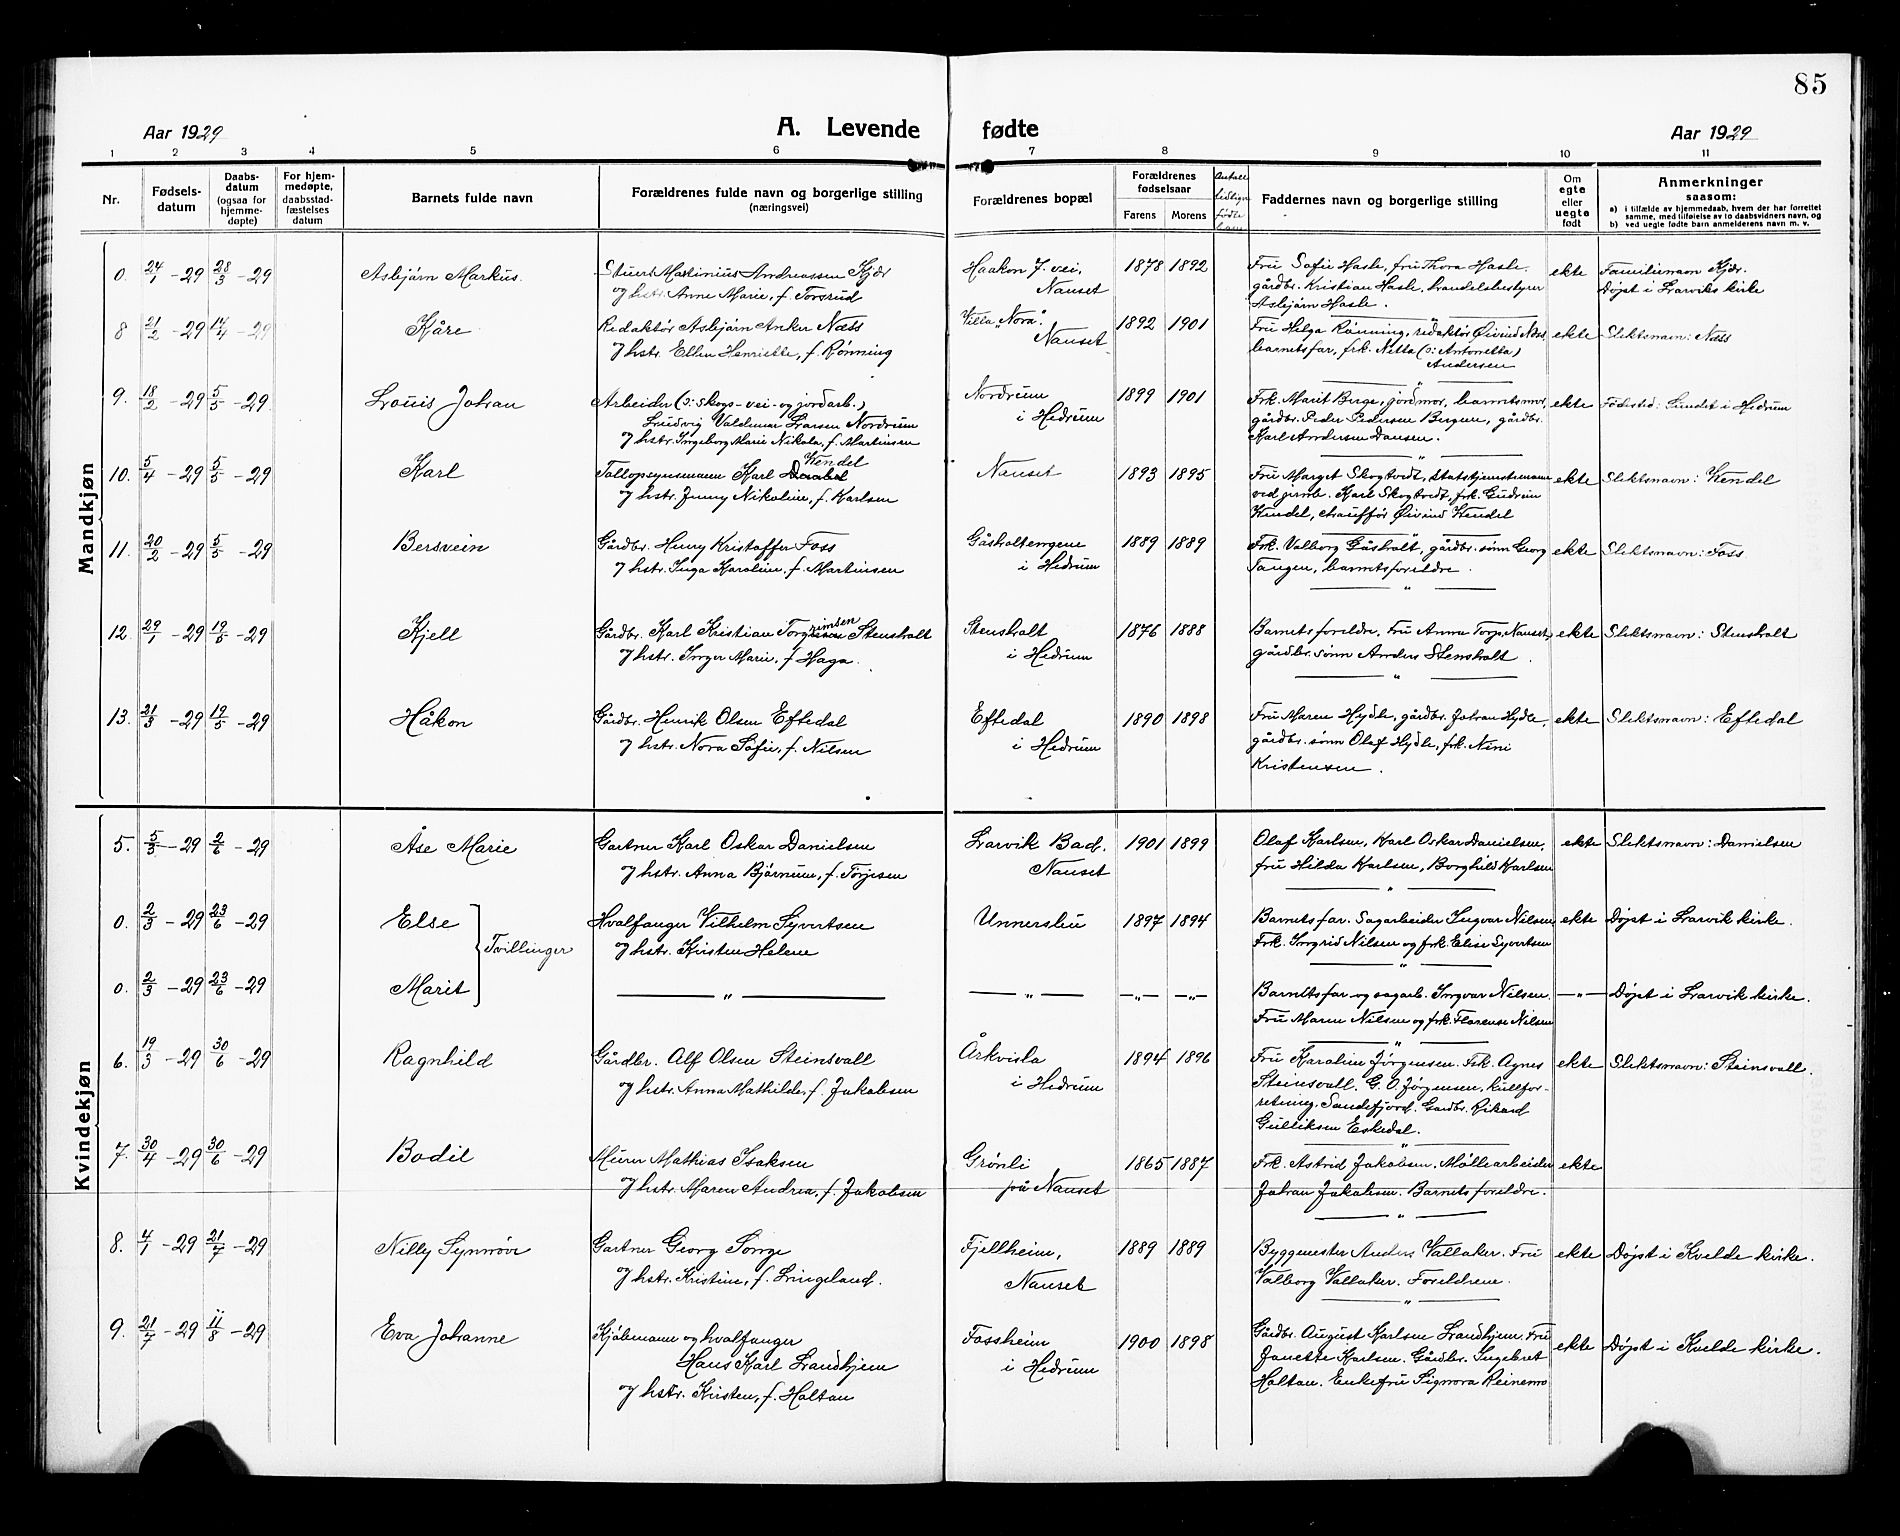 85
Aar 1929
A. Levende fødte
Aar 1929
1 2 3 4 5 6 7 8 9 10 11
Nr.
Fødsels-
datum
Daabs-
datum
(ogsaa for
hjemme-
døpte)
For hjem-
medøpte,
daabsstad-
fæstelses
datum
Barnets fulde navn
Forældrenes fulde navn og borgerlige stilling
(næringsvei)
Forældrenes bopæl
Forældrenes
fødselsaar
Farens Morens
Antall
fødte
Faddernes navn og borgerlige stilling
Om
egte
eller
uegte
født
Anmerkninger
saasom:
a) i tilfælde av hjemmedaab, hvem der har forrettet
samme, med tilføielse av to daabsvidners navn, og
b) ved uegte fødte barn anmelderens navn m. v.
Mandkjøn
0. 24/1 -29 28/3 -29
Asbjørn Markus.
Stuert Martinius Andreassen Kjær
og hstr. Anne Marie, f. Torsrud
Haakon 7. vei,
Nanset
1878 1892
Fru Sofie Hasle, fru Thora Hasle.
gårdbr. Kristian Hasle, handelsbestyrer
Asbjørn Hasle.
ekte
Familienavn Kjær.
Døpt i Larviks kirke
8 21/2 -29 14/4 -29
Kåre
Redaktør Asbjørn Anker Næss
og hstr. Ellen Henriette, f. Rønning
Villa "Nora".
Nanset
1892 1901
Fru Helga Rønning, redaktør Øivind Næss
barnets far, frk. Netta (ɔ: Antonetta)
Andersen
ekte
Slektsnavn: Næss
9. 18/2 -29 5/5 -29
Louis Johan
Arbeider (ɔ: skogs- vei- og jordarb.)
Ludvig Valdemar Larsen Nordrum
og hstr. Ingeborg Marie Nikola, f. Martinsen
Nordrum
i Hedrum
1899 1901
Frk. Marit Berge, jordmor, barnets mor,
gårdbr. Peder Pedersen Bergen, gårdbr.
Karl Andersen Dansen.
ekte
Fødested: Sundet i Hedrum
10. 5/4 -29 5/5 -29
Karl
Tallopsynsmann Karl Kendel
og hstr. Jenny Nikoline, f. Karlsen
Nanset
1893 1895
Fru Marget Skogtvedt, statstjenestemann
ved jernb. Karl Skogtvedt, frk. Gudrun
Kendel, chauffør Øivind Kendel
ekte
Slektsnavn: Kendel
11. 20/2 -29 5/5 -29
Bersvein
Gårdbr. Henry Kristoffer Foss
og hstr. Inga Karoline, f. Martinsen
Gåsholtengene
i Hedrum
1889 1889
Frk. Valborg Gåsholt, gårdbr. sønn Georg
Tangen, barnets foreldre.
ekte
Slektsnavn: Foss.
12. 29/1 -29 19/5 -29
Kjell
Gårdbr. Karl Kristian Torgrimsen Stensholt
og hstr. Inger Marie, f. Haga.
Stensholt
i Hedrum
1876 1888
Barnets foreldre, Fru Anna Torp, Nanset,
gårdbr. sønn Anders Stensholt.
ekte
Slektsnavn: Stensholt
13. 21/3 -29 19/5 -29
Håkon
Gårdbr. Henrik Olsen Eftedal
og hstr. Nora Sofie, f. Nilsen
Eftedal
i Hedrum
1890 1898
Fru Maren Hydle, gårdbr. Johan Hydle,
gårdbr. sønn Olaf Hydle, frk. Nini
Kristensen.
ekte
Slektsnavn: Eftedal
Kvindekjøn
5. 5/3 -29 2/6 -29
Åse Marie
Gartner Karl Oskar Danielsen
og hstr. Anna Bjørnum, f. Torjesen
Larvik Bad.
Nanset
1901 1899
Olaf Karlsen, Karl Oskar Danielsen,
fru Hilda Karlsen, Borghild Karlsen
ekte
Slektsnavn: Danielsen
0. 2/3 -29 23/6 -29
Else
Tvillinger
Hvalfanger Vilhelm Syvertsen
og hstr. Kirsten Helene
Unnersbu
1897 1894
Barnets far. Sagarbeider Ingvar Nilsen
Frk. Ingrid Nilsen og frk. Elise Syvertsen
ekte
Døpt i Larvik kirke.
0. 2/3 -29 23/6 -29
Marit
— " —
— " —
— " — — " —
Barnets far og sagarb. Ingvar Nilsen.
Fru Maren Nilsen og frk. Florense Nilsen
— " —
Døpt i Larvik kirke.
6. 19/3 -29 30/6 -29
Ragnhild
Gårdbr. Alf Olsen Steinsvall
og hstr. Anna Mathilde, f. Jakobsen
Årkvisla
i Hedrum
1894 1896
Fru Karoline Jørgensen. Frk. Agnes
Steinsvall. G. O. Jørgensen, kullfor-
retning, Sandefjord. Gårdbr. Rikard
Gulliksen Eskedal.
ekte
Slektsnavn: Steinsvall.
7. 30/4 -29 30/6 -29
Bodil
Murer Mathias Isaksen
og hstr. Maren Andrea, f. Jakobsen
Grønli
på Nanset
1865 1887
Frk. Astrid Jakobsen. Møllearbeider
Johan Jakobsen. Barnets foreldre.
ekte
8. 4/1 -29 21/7 -29
Nilly Synnøve
Gartner Georg Sorge
og hstr. Kristine, f. Lingeland.
Fjellheim,
Nanset
1889 1889
Byggmester Anders Vallaker. Fru
Valborg Vallaker. Foreldrene.
ekte
Døpt i Kvelde kirke.
9. 21/7 -29 11/8 -29
Eva Johanne
Kjølemann og hvalfanger
Hans Karl Landhjem
og hstr. Kirsten, f. Holtan
Fossheim
i Hedrum
1900 1898
Gårdbr. August Karlsen Landhjem. Fru
Janette Karlsen. Gårdbr. Ingebret
Holtan. Enkefru Signora Reinemo
ekte
Døpt i Kvelde kirke.